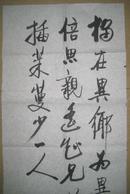 獨在異鄉為異
倍思親遙知兄
插茱萸少一人